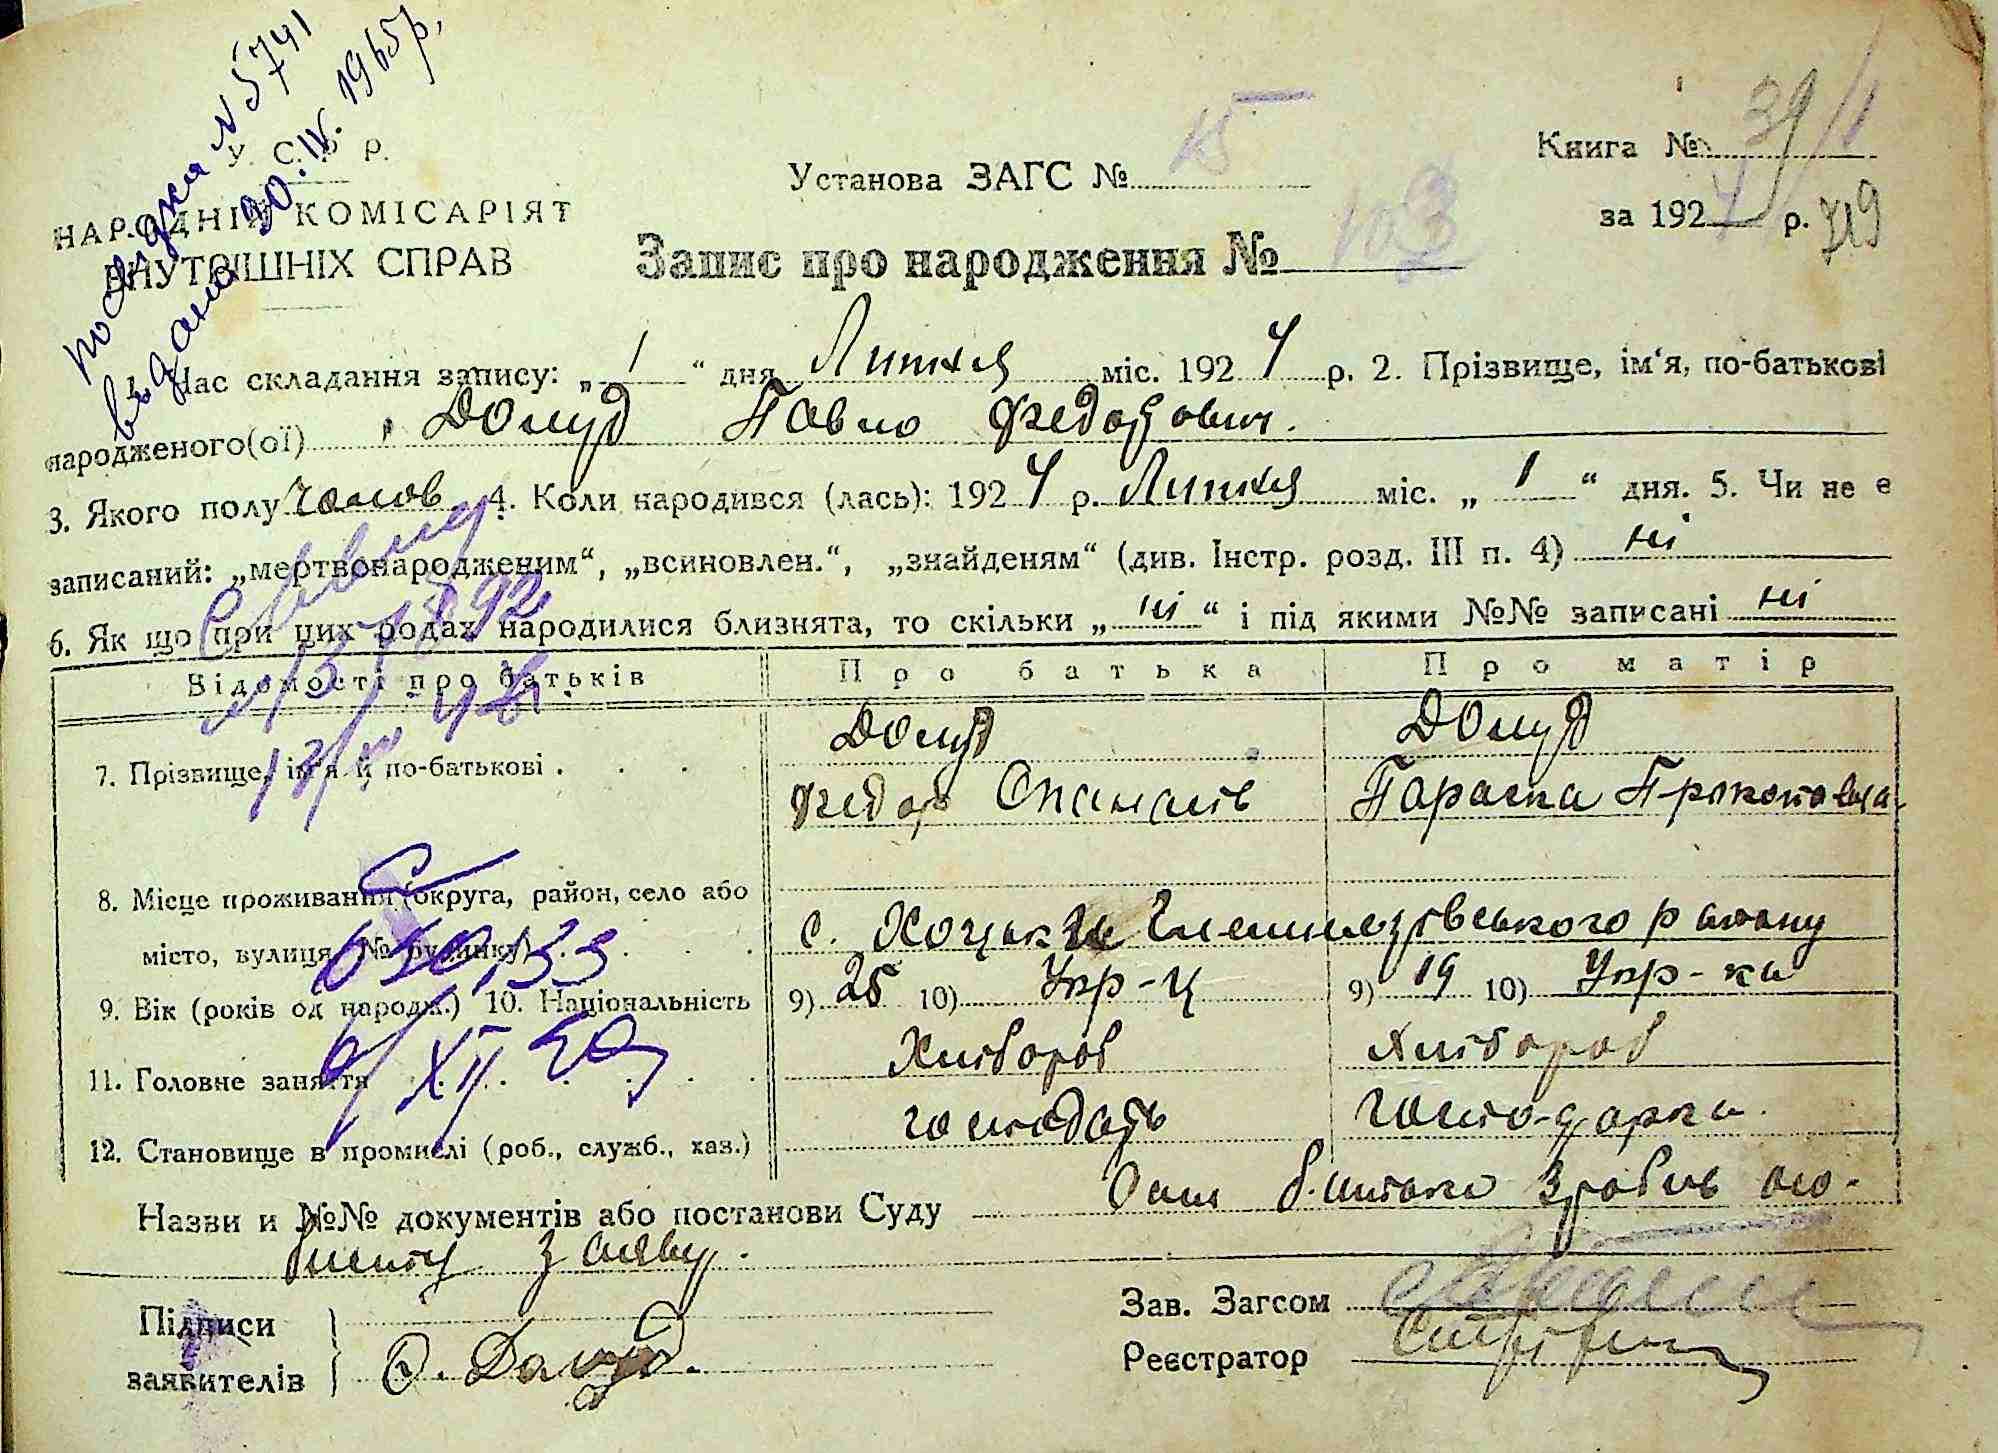 посвідка N 5741
видана 30.IV.1965р.
У. С. Р. Р.
НАРОДНІЙ КОМІСАРІЯТ
ВНУТРІШНІХ СПРАВ
Установа ЗАГС № 15
Книга № 39/1
за 1924 р. 719
Запис про народження № 103
1. Час складання запису: „1“ дня Липня міс. 1924 р. 2. Прізвище, ім‘я, по-батькові
народженого(ої) Домуд Павло Федорович.
3. Якого полу чолов. 4. Коли народився (лась): 1924 р. Липня міс. „1“ дня. 5. Чи не є
записаний: „мертвонародженим“, „всиновлен.“, „знайденям“ (див. Інстр. розд. III п. 4) ні
6. Як що при цих родах народилися близнята, то скільки „ні“ і під якими №№ записані ні
Відомості про батьків Про батька Про матір
7. Прізвище, ім‘я й по-батькові . . . Домуд Домуд
Федор Опанасів Параска Прокоповна
8. Місце проживання (округа, район, село або
місто, вулиця, № будинку) с. Хоцьки району
9. Вік (років од народж.) 10. Національність 9) 25 10) Укр-ц 9) 19 10) Укр-ка
11. Головне заняття Хлібороб Хлібороб
12. Становище в промислі (роб., служб., хаз.) господарь господарка
Назви и №№ документів або постанови Суду зробив осо-
бисту заяву.
Підписи
заявителів
Зав. Загсом
Реєстратор